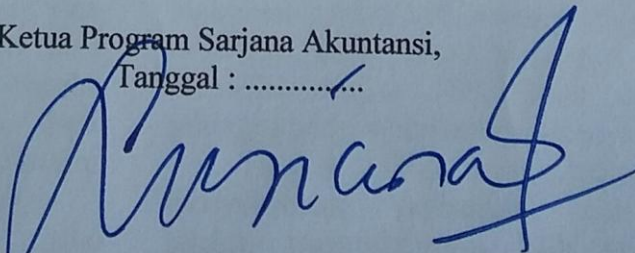 Ketua Program Sarjana Akuntansi,
Tanggal : ................